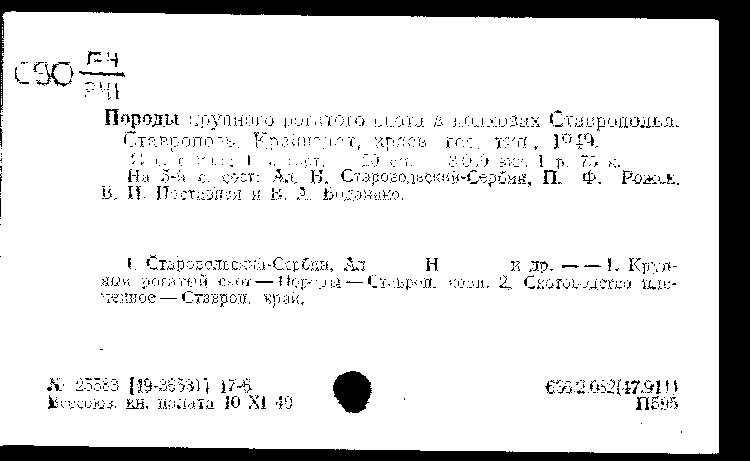 С90 П-4
Р41
Породы крупного рогатого скота в колхозах Ставрополья.
Ставрополь, Крайиздат, краев. гос. тип., 1949.
1 20 см. 1 р. 75 к.
На 3-й с. сост: Ал. Н. Старовольский-Сербин, П. Ф. Рожок,
В. И. и В. А. Водянко.
1. Старовольский-Сербин, Ал Н и др. — — 1. Круп-
ный рогатый скот — Породы — Ставроп. край. 2. Скотоводство пле-
менное — Ставроп. край.
№ 25583 [49-26531] 17-6
Всесоюз. кн. палата 10 XI 49
636.2.082(47.911)
П595